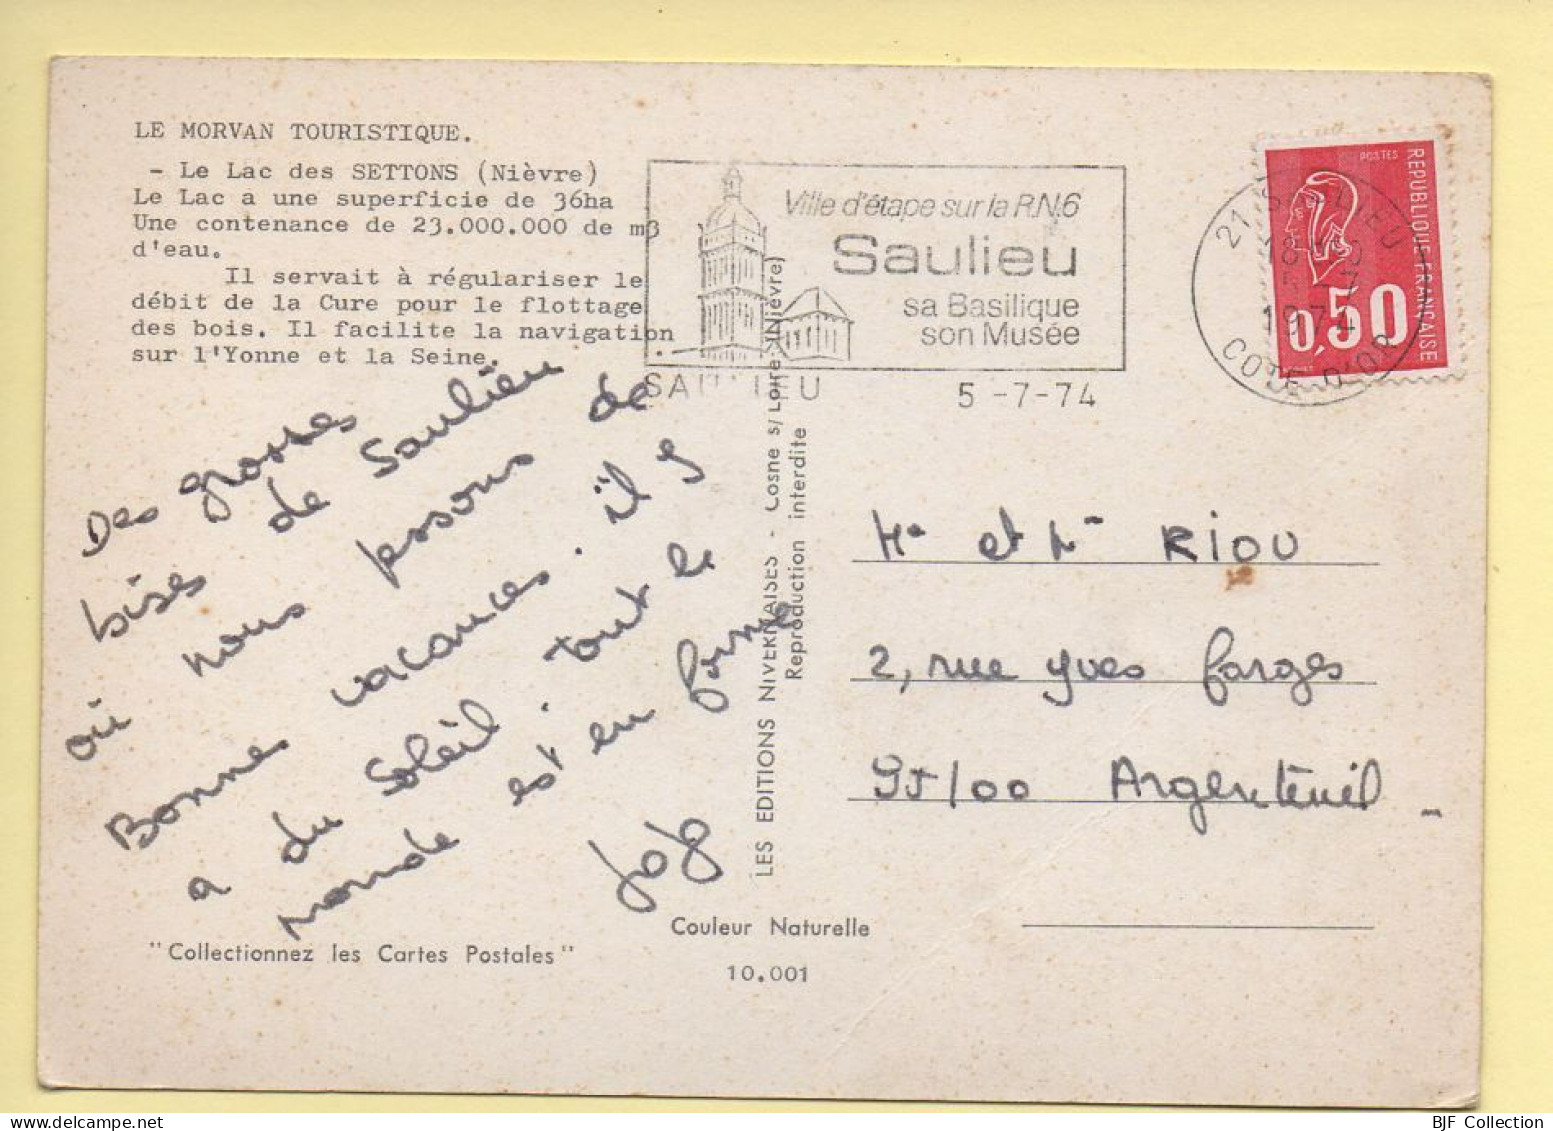 LE MORVAN TOURISTIQUE.
- Le Lac des SETTONS (Nièvre)
Le Lac a une superficie de 36ha
Une contenance de 23.000.000 de m3
d'eau.
Il servait à régulariser le
débit de la Cure pour le flottage
des bois. Il facilite la navigation
sur l'Yonne et la Seine.
Des grosses
bises de Saulieu
où nous passons de
Bonnes vacances. il y
a du soleil. tout le
monde est en forme
JoJo
"Collectionnez les Cartes Postales"
Couleur Naturelle
10.001
LES EDITIONS NIVERNAISES - Cosne s/Loire (Nièvre)
Reproduction interdite
Ville d'étape sur la R.N.6
Saulieu
sa Basilique
son Musée
SAULIEU 5 -7-74
21 SAULIEU
18H
1974
COTE D'OR
POSTES
REPUBLIQUE FRANÇAISE
0,50
Me et Mr RIOU
2, rue yves farges
95100 Argenteuil
BJF Collection